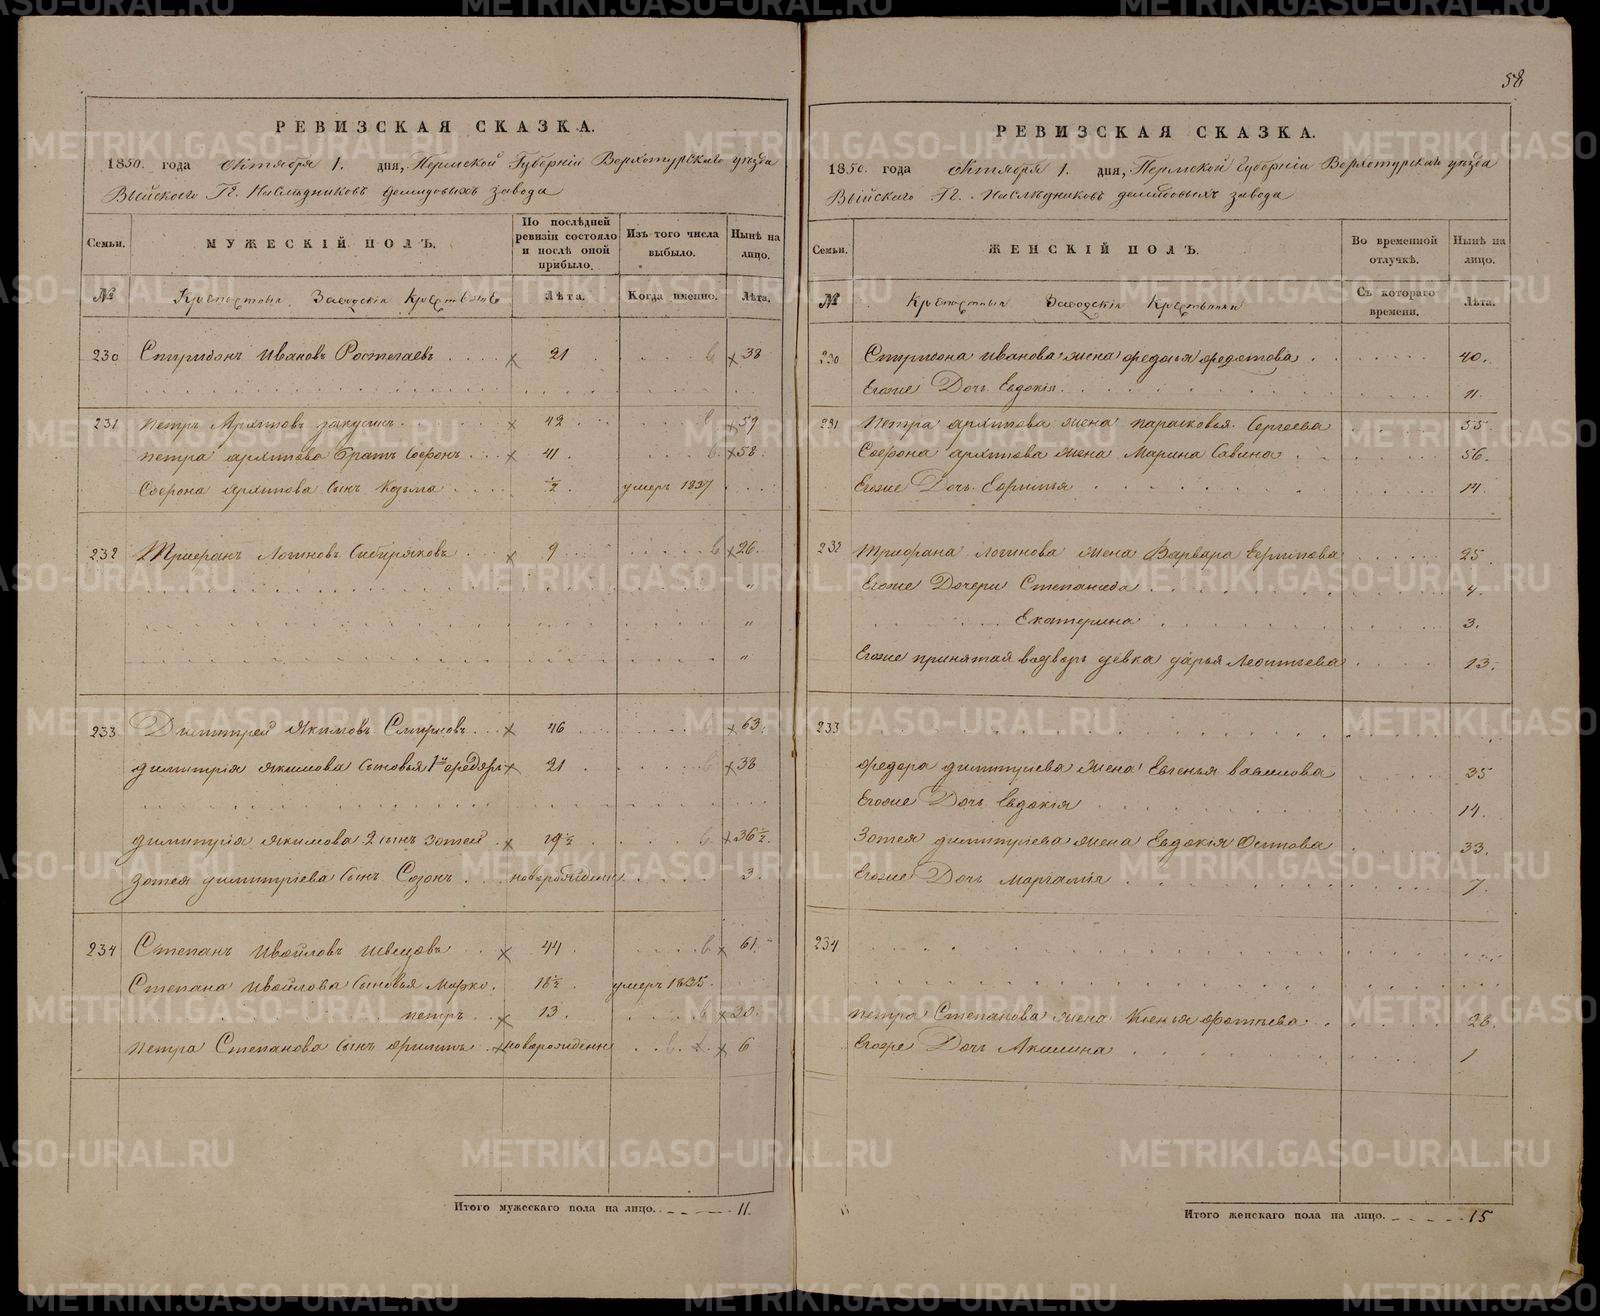 58
РЕВИЗСКАЯ СКАЗКА.
1850. года октября 1. дня, Пермской Губернiи Верхотурскаго уезда
Выйскаго Гг. Наследниковъ демидовыхъ завода
Семьи.
МУЖЕСКІЙ ПОЛЪ.
По послѣдней ревизіи состояло и послѣ оной прибыло.
Изъ того числа выбыло.
Нынѣ на лицо.
№ Крепостныя Заводскія Крестьяне Лѣта. Когда именно. Лѣта.
230 Спиридонъ Ивановъ Ростегаевъ 21 38
231 петръ Архиповъ закусинъ 42 59
петра архипова братъ Софонъ 41 58
Софона архипова сынъ Козьма ½ умеръ 1837
232 Трифанъ Логиновъ Сибиряковъ 9 26
233 Димитрей Якимовъ Смирновъ 46 63
димитрія якимова сыновья 1й федоръ 21 38
димитрія якимова 2 сынъ Зотей 19½ 36½
зотея димитріева сынъ Созонъ новорожденъ 3.
234 Степанъ Ивойловъ швецовъ 44 61
Степана Ивойлова сыновья Марко. 18½ умеръ 1835
петръ 13. 30.
петра Степанова сынъ филипъ новорожденъ 6
Итого мужескаго пола на лицо. 11.
РЕВИЗСКАЯ СКАЗКА.
1850. года октября 1. дня, Пермской Губерніи Верхотурскаго уезда
Выйскаго Гг. Наследниковъ демидовыхъ завода
Семьи.
ЖЕНСКІЙ ПОЛЪ.
Во временной отлучкѣ.
Нынѣ на лицо.
№ Крепостныя Заводскія Крестьянки Съ котораго времени. Лѣта.
230 Спиридона иванова жена федосья федотова 40.
Егоже Дочь Евдокія 11.
231 петра архипова жена парасковья Сергеева 55
Софона архипова жена Марина Савина 56.
Егоже Дочь 14.
232 Трифана логинова жена Варвара 25
Егоже Дочери Степанида 4.
Екатерина 3.
Егоже принятая водворъ девка дарья Леонтьева 13.
233
федора димитріева жена Евгенья 35
Егоже Дочь Евдокія 14.
Зотея димитріева жена Евдокія Осипова 33.
Егоже Дочь 7.
234
петра Степанова жена Ксенья фотіева 26.
Егоже Дочь Акилина 1
Итого женскаго пола на лицо. 15
METRIKI.GASO-URAL.RU